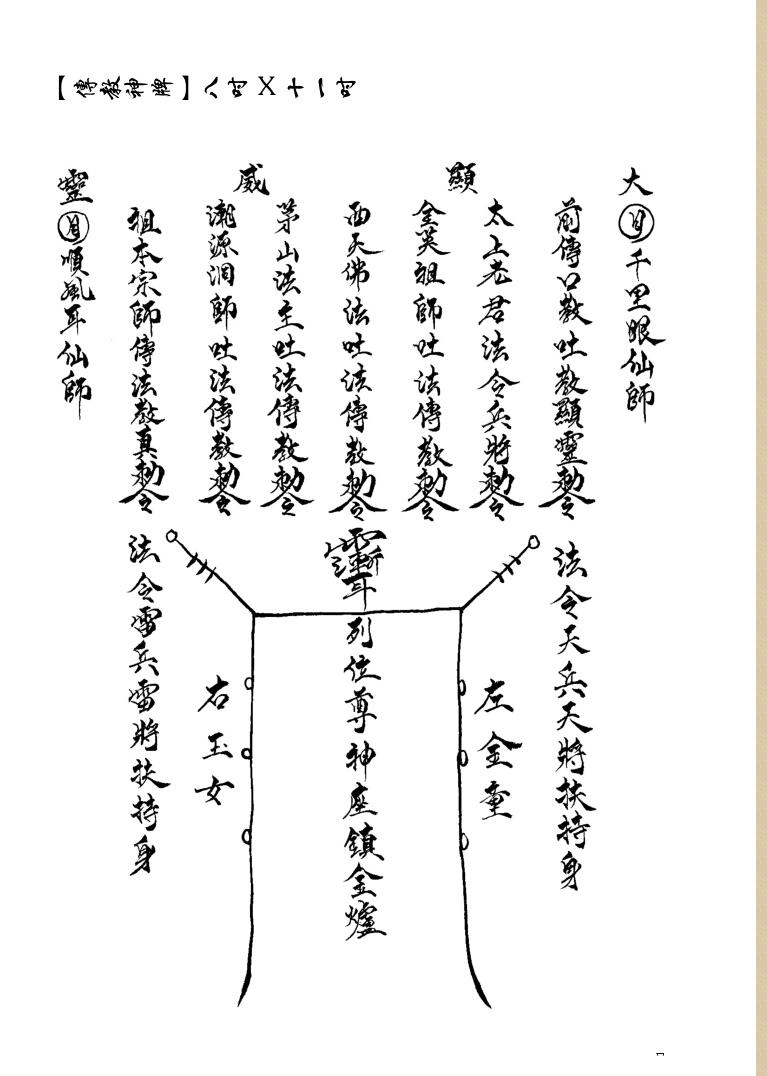 【傳教神牌】八吋X十一吋
大顯威靈
日千里眼仙師
前傳口教吐教顯靈勅令
太上老君法令兵將勅令
全英祖師吐法傳教勅令
西天佛法吐法傳教勅令
茅山法主吐法傳教勅令
潮源洞師吐法傳教勅令
祖本宗師傳法教真勅令
月順風耳仙師
法令天兵天將扶持身
左金童
列位尊神座鎮金爐
右玉女
法令雷兵雷將扶持身